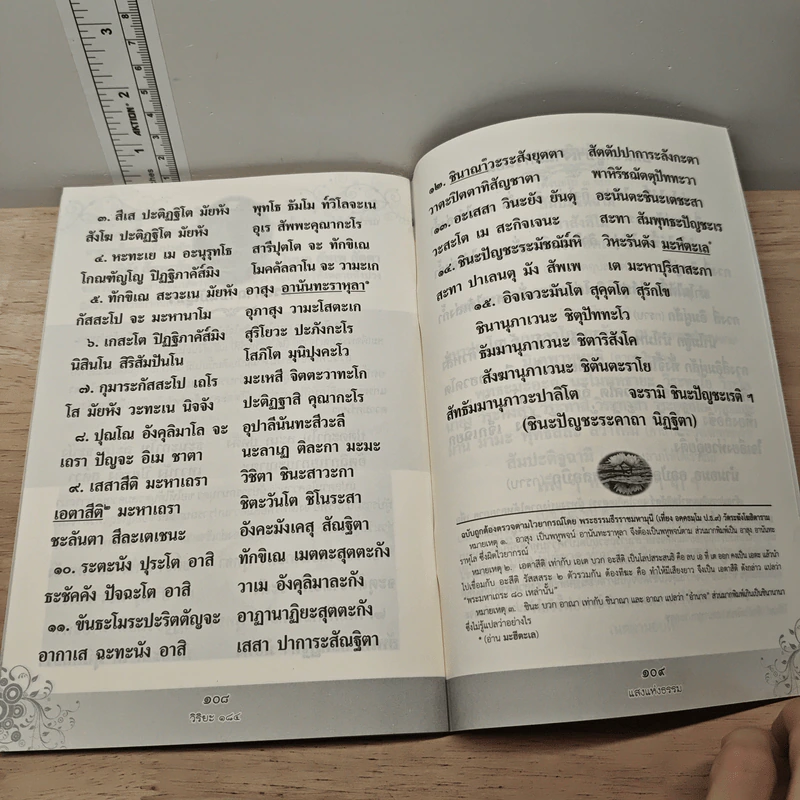 3
2
1
ACTION
๓. สีเส ปะติฏฐิโต มัยหัง พุทโธ ธัมโม ทวิโลจะเน
สังโฆ ปะติฏฐิโต มัยหัง อุเร สัพพะคุณากะโร
๔. หะทะเย เม อะนุรุทโธ สารีปุตโต จะ ทักขิเณ
โกณฑัญโญ ปิฏฐิภาคัส๎มิง โมคคัลลาโน จะ วามะเก
๕. ทักขิเณ สะวะเน มัยหัง อาสุง อานันทะราหุลา*
กัสสะโป จะ มะหานาโม อุภาสุง วามะโสตะเก
๖. เกสะโต ปิฏฐิภาคัส๎มิง สุริโยวะ ปะภังกะโร
นิสินโน สิริสัมปันโน โสภิโต มุนิปุงคะโว
๗. กุมาระกัสสะโป เถโร มะเหสี จิตตะวาทะโก
โส มัยหัง วะทะเน นิจจัง ปะติฏฐาสิ คุณากะโร
๘. ปุณโณ อังคุลิมาโล จะ อุปาลีนันทะสีวะลี
เถรา ปัญจะ อิเม ชาตา นะลาเฏ ติละกา มะมะ
๙. เสสาสีติ มะหาเถรา วิชิตา ชินะสาวะกา
เอตาสีติ๒ มะหาเถรา ชิตะวันโต ชิโนระสา
ชะลันตา สีละเตเชนะ อังคะมังเคสุ สัณฐิตา
๑๐. ระตะนัง ปุระโต อาสิ ทักขิเณ เมตตะสุตตะกัง
ธะชัคคัง ปัจฉะโต อาสิ วาเม อังคุลิมาละกัง
๑๑. ขันธะโมระปะริตตัญจะ อาฏานาฏิยะสุตตะกัง
อากาเส ฉะทะนัง อาสิ เสสา ปาการะสัณฐิตา
๑๐๘
วิริยะ ๑๘๔
๑๒. ชินาณา๓วะระสังยุตตา สัตตัปปาการะลังกะตา
วาตะปิตตาทิสัญชาตา พาหิรัชฌัตตุปัททะวา
๑๓. อะเสสา วินะยัง ยันตุ อะนันตะชินะเตชะสา
วะสะโต เม สะกิจเจนะ สะทา สัมพุทธะปัญชะเร
๑๔. ชินะปัญชะระมัชฌัม๎หิ วิหะรันตัง มะหีตะเล*
สะทา ปาเลนตุ มัง สัพเพ เต มะหาปุริสาสะภา
๑๕. อิจเจวะมันโต สุคุตโต สุรักโข
ชินานุภาเวนะ ชิตุปัททะโว
ธัมมานุภาเวนะ ชิตาริสังโค
สังฆานุภาเวนะ ชิตันตะราโย
สัทธัมมานุภาวะปาลิโต จะรามิ ชินะปัญชะเรติ ฯ
(ชินะปัญชะระคาถา นิฏฐิตา)
ฉบับถูกต้องตรวจตามไวยากรณ์โดย พระธรรมธีรราชมหามุนี (เที่ยง อคฺคธมฺโม ป.ธ.๙) วัดระฆังโฆสิตาราม
หมายเหตุ ๑. อาสุง เป็นพหูพจน์ อานันทะราหุลา จึงต้องเป็นพหูพจน์ตาม ส่วนมากพิมพ์เป็น อาสุง อานันทะ
ราหุโล ซึ่งผิดไวยากรณ์
หมายเหตุ ๒. เอตาสีติ เท่ากับ เอเต บวก อะสีติ เป็นโลปสระสนธิ คือ ลบ เอ ที่ เต ออก คงเป็น เอตะ แล้วนำ
ไปเชื่อมกับ อะสีติ รัสสสระ ๒ ตัวรวมกัน ต้องทีฆะ คือ ทำให้มีเสียงยาว จึงเป็น เอตาสีติ ดังกล่าว แปลว่า
"พระมหาเถระ ๘๐ เหล่านั้น"
หมายเหตุ ๓. ชินะ บวก อาณา เท่ากับ ชินาณา และ อาณา แปลว่า "อำนาจ" ส่วนมากพิมพ์เกินเป็นชินานานา
ซึ่งไม่รู้แปลว่าอย่างไร
* (อ่าน มะฮีตะเล)
๑๐๙
แสงแห่งธรรม